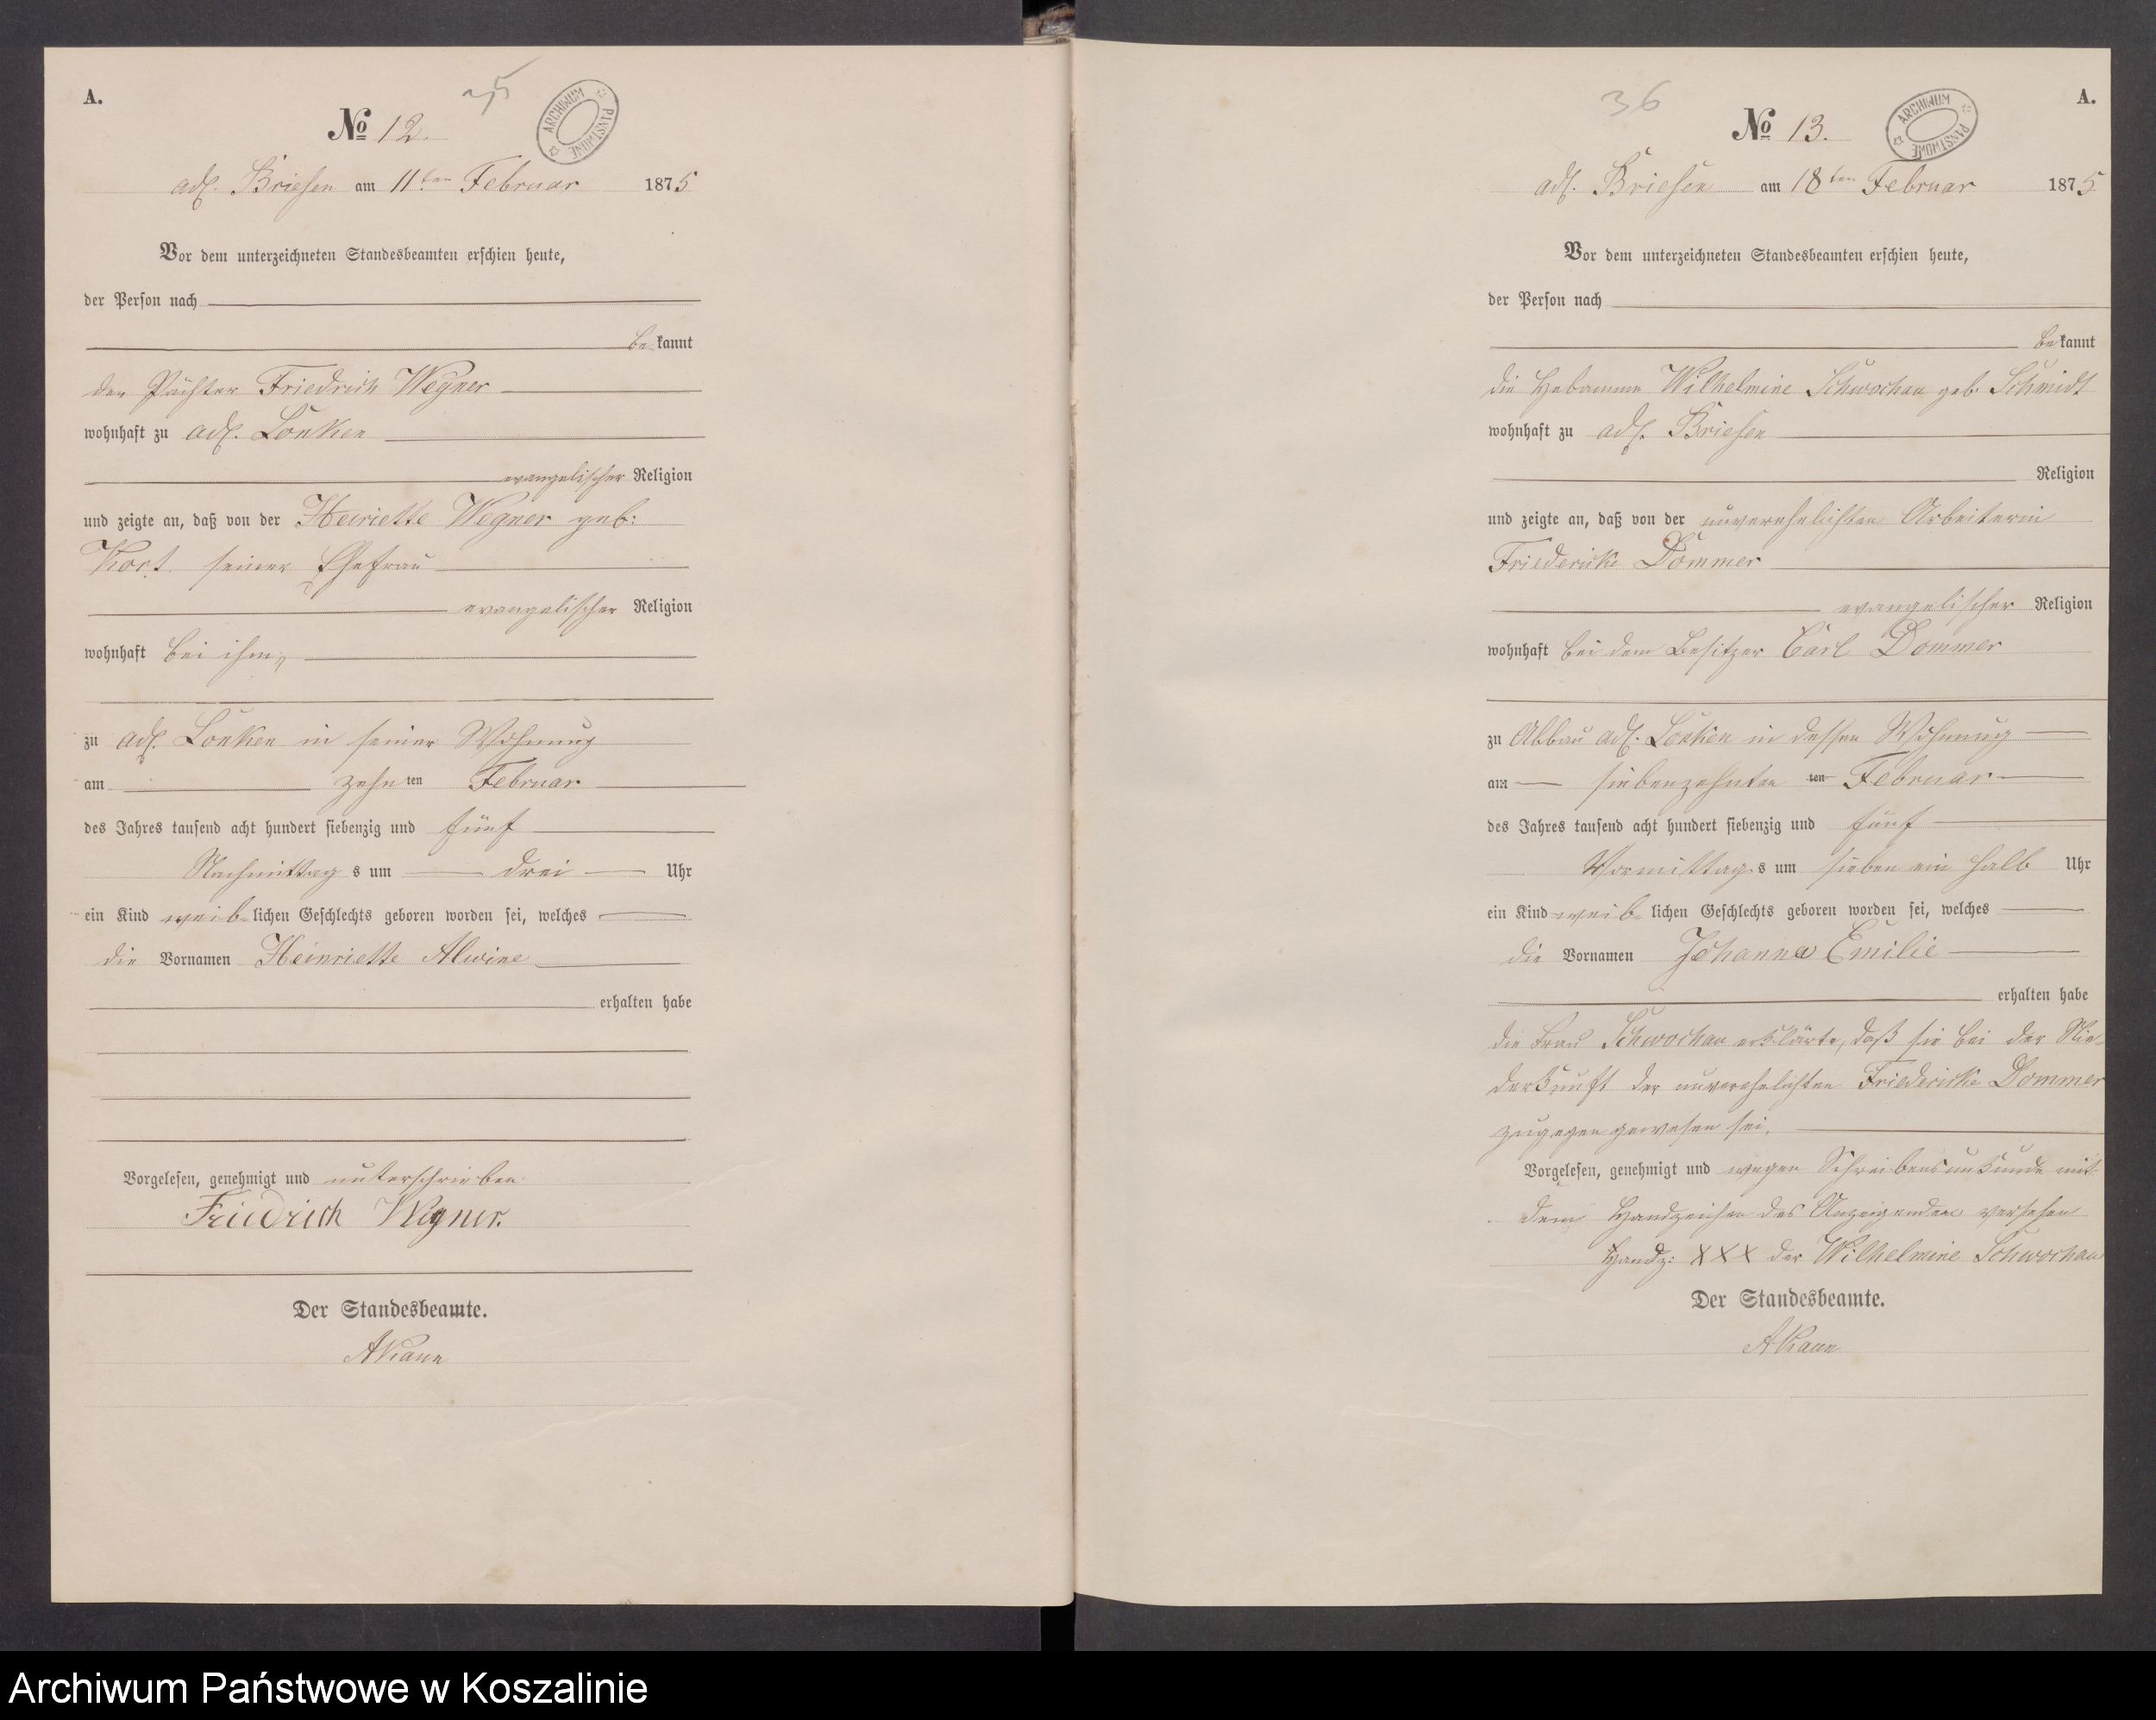 A.
25
No 12.
ARCHIWUM PAŃSTWOWE
adl. Briesen am 11ten Februar 1875
Vor dem unterzeichneten Standesbeamten erschien heute,
der Person nach
bekannt
der Pächter Friedrich Wegner
wohnhaft zu adl. Lonken
evangelischer Religion
und zeigte an, daß von der Henriette Wegner geb:
Kort seiner Ehefrau
evangelischer Religion
wohnhaft bei ihm,
zu adl. Lonken in seiner Wohnung
am zehnten Februar
des Jahres tausend acht hundert siebenzig und fünf
Nachmittags um drei Uhr
ein Kind weiblichen Geschlechts geboren worden sei, welches
die Vornamen Heinriette Alwine
erhalten habe
Vorgelesen, genehmigt und unterschrieben
Friedrich Wegner.
Der Standesbeamte.
36
A.
No 13.
ARCHIWUM PAŃSTWOWE
adl. Briesen am 18ten Februar 1875
Vor dem unterzeichneten Standesbeamten erschien heute,
der Person nach
bekannt
die Hebamme Wilhelmine Schwochau geb. Schmidt
wohnhaft zu adl. Briesen
Religion
und zeigte an, daß von der unverehelichten Arbeiterin
Friedericke Dommer
evangelischer Religion
wohnhaft bei dem Besitzer Carl Dommer
zu Abbau adl. Lonken in dessen Wohnung
am siebenzehnten ten Februar
des Jahres tausend acht hundert siebenzig und fünf
Vormittags um sieben ein halb Uhr
ein Kind weiblichen Geschlechts geboren worden sei, welches
die Vornamen Johanna Emilie
erhalten habe
die Frau Schwochau erklärte, daß sie bei der Nie-
derkunft der unverehelichten Friedericke Dommer
zugegen gewesen sei.
Vorgelesen, genehmigt und wegen Schreibensunkunde mit
dem Handzeichen des Anzeigenden versehen
Handz: XXX der Wilhelmine Schwochau
Der Standesbeamte.
Archiwum Państwowe w Koszalinie